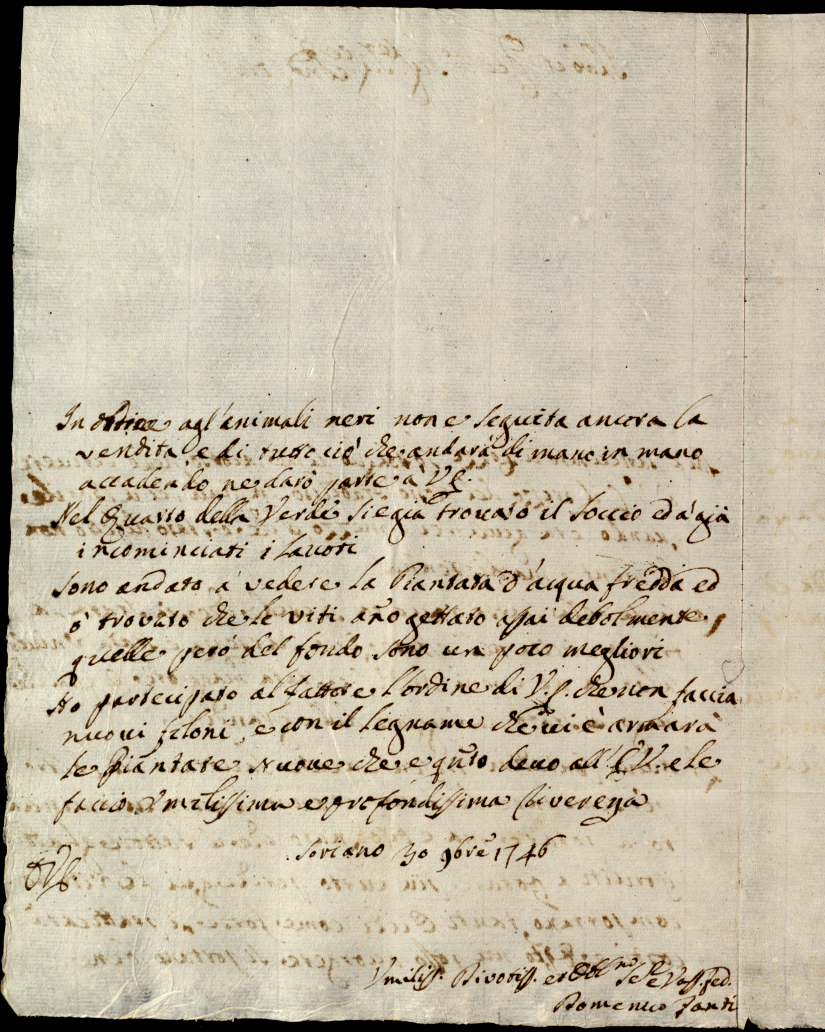 In ordine agl'animali neri non e seguita ancora la
vendita e di tutto ciò che andarà di mano in mano
accadendo ne darò parte à V. E.
Nel Quarto della Verde si è già trovato il Soccio ed à già
incominciati i lavori
Sono andato a vedere la Piantata d'acqua fredda ed
ò trovato che le viti año gettato assai debolmente,
quelle però del fondo sono un poco megliori
Ho partecipato al fattore l'ordine di V. E. che non faccia
nuovi filoni, e con il legname che vi è armarà
le Piantate Nuove che e qũto devo all' E. V. e le
faccio Umilissima e profondissima Riverenza
Soriano 30 9bre 1746
D V E
Umiliss. Divotiss. ed Obb.mo Se.re Vass. fed.
Domenico Fanti